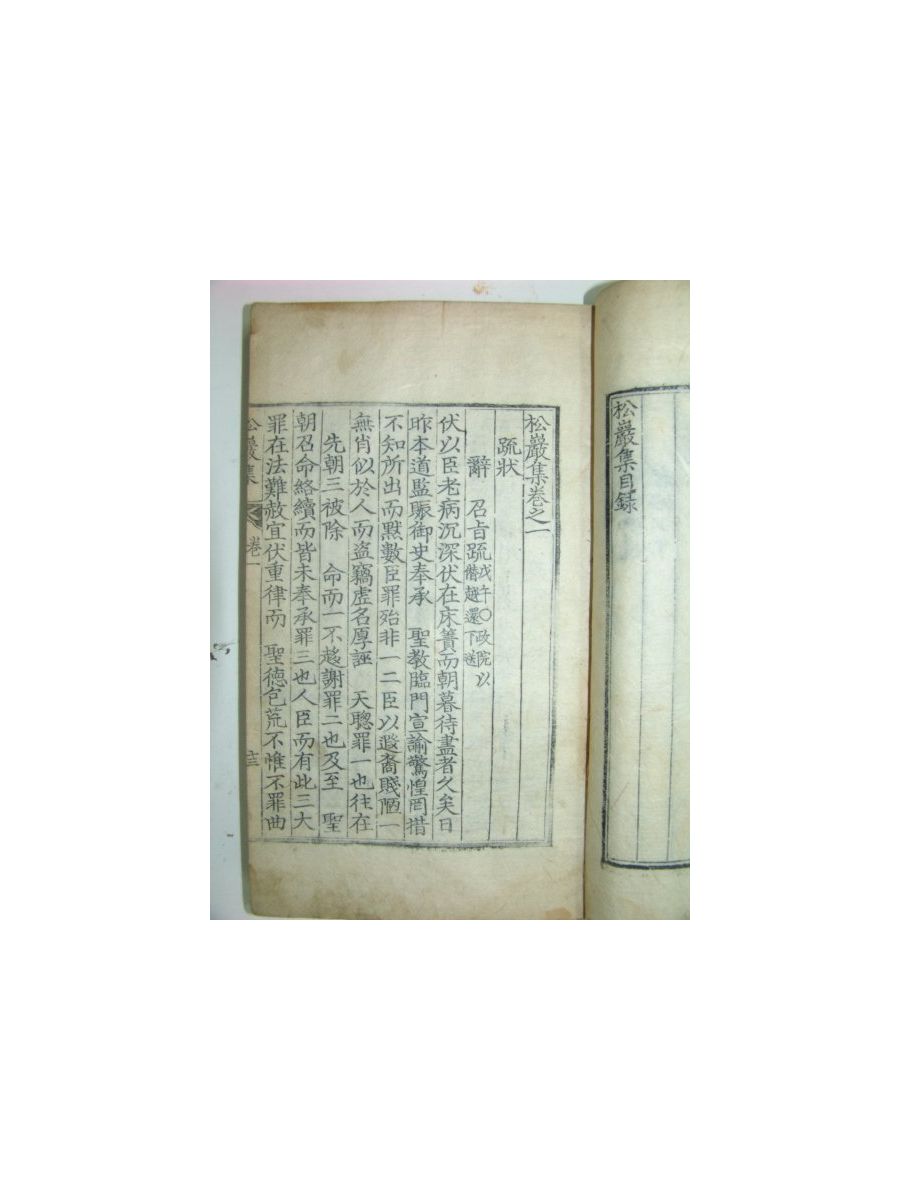 松巖集目錄
松巖集卷之一
疏狀
辭 召旨疏 戊午○政院以
僭越還下送
伏以臣老病沉深伏在床簀而朝暮待盡者久矣日
昨本道監賑御史奉承 聖教臨門宣諭驚惶罔措
不知所出而黙數臣罪殆非一二臣以遐裔賤陋一
無肖似於人而盜竊虛名厚誣 天聰罪一也往在
先朝三被除 命而一不趍謝罪二也及至 聖
朝召命絡續而皆未奉承罪三也人臣而有此三大
罪在法難赦宜伏重律而 聖德包荒不惟不罪曲
松巖集 卷一